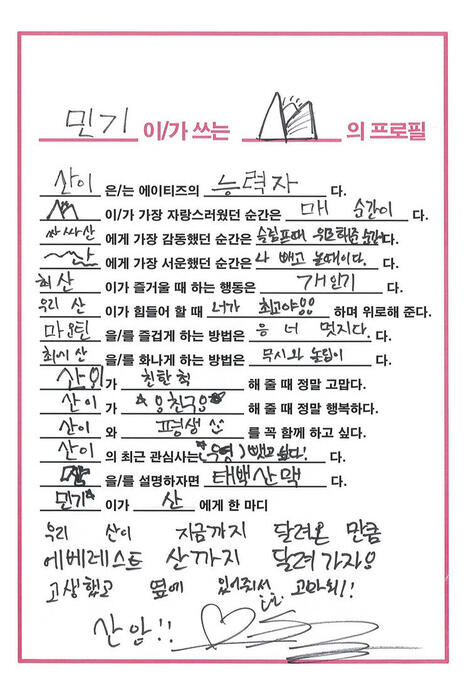 민기 이/가 쓰는 의 프로필
산이 은/는 에이티즈의 능력자 다.
이/가 가장 자랑스러웠던 순간은 매 순간이 다.
싸싸산 에게 가장 감동했던 순간은 슬럼프때 위로해준 순간 다.
산 에게 가장 서운했던 순간은 나 빼고 놀때이다. 다.
최산 이가 즐거울 때 하는 행동은 개인기 다.
우리 산 이가 힘들어 할 때 너가 최고야 하며 위로해 준다.
을/를 즐겁게 하는 방법은 응 너 멋지다. 다.
최에산 을/를 화나게 하는 방법은 무시와 놀림이 다.
산이 가 친한척 해 줄 때 정말 고맙다.
산이 가 응친구응 해 줄 때 정말 행복하다.
산이 와 평생 산 를 꼭 함께 하고 싶다.
산이 의 최근 관심사는 (우영) 뺏고싶다! 다.
산 을/를 설명하자면 태백산맥 다.
민기 이가 산 에게 한 마디
우리 산이 지금까지 달려온 만큼
에베레스트 산까지 달려가자응
고생했고 옆에 있어줘서 고마워!!
산암!!